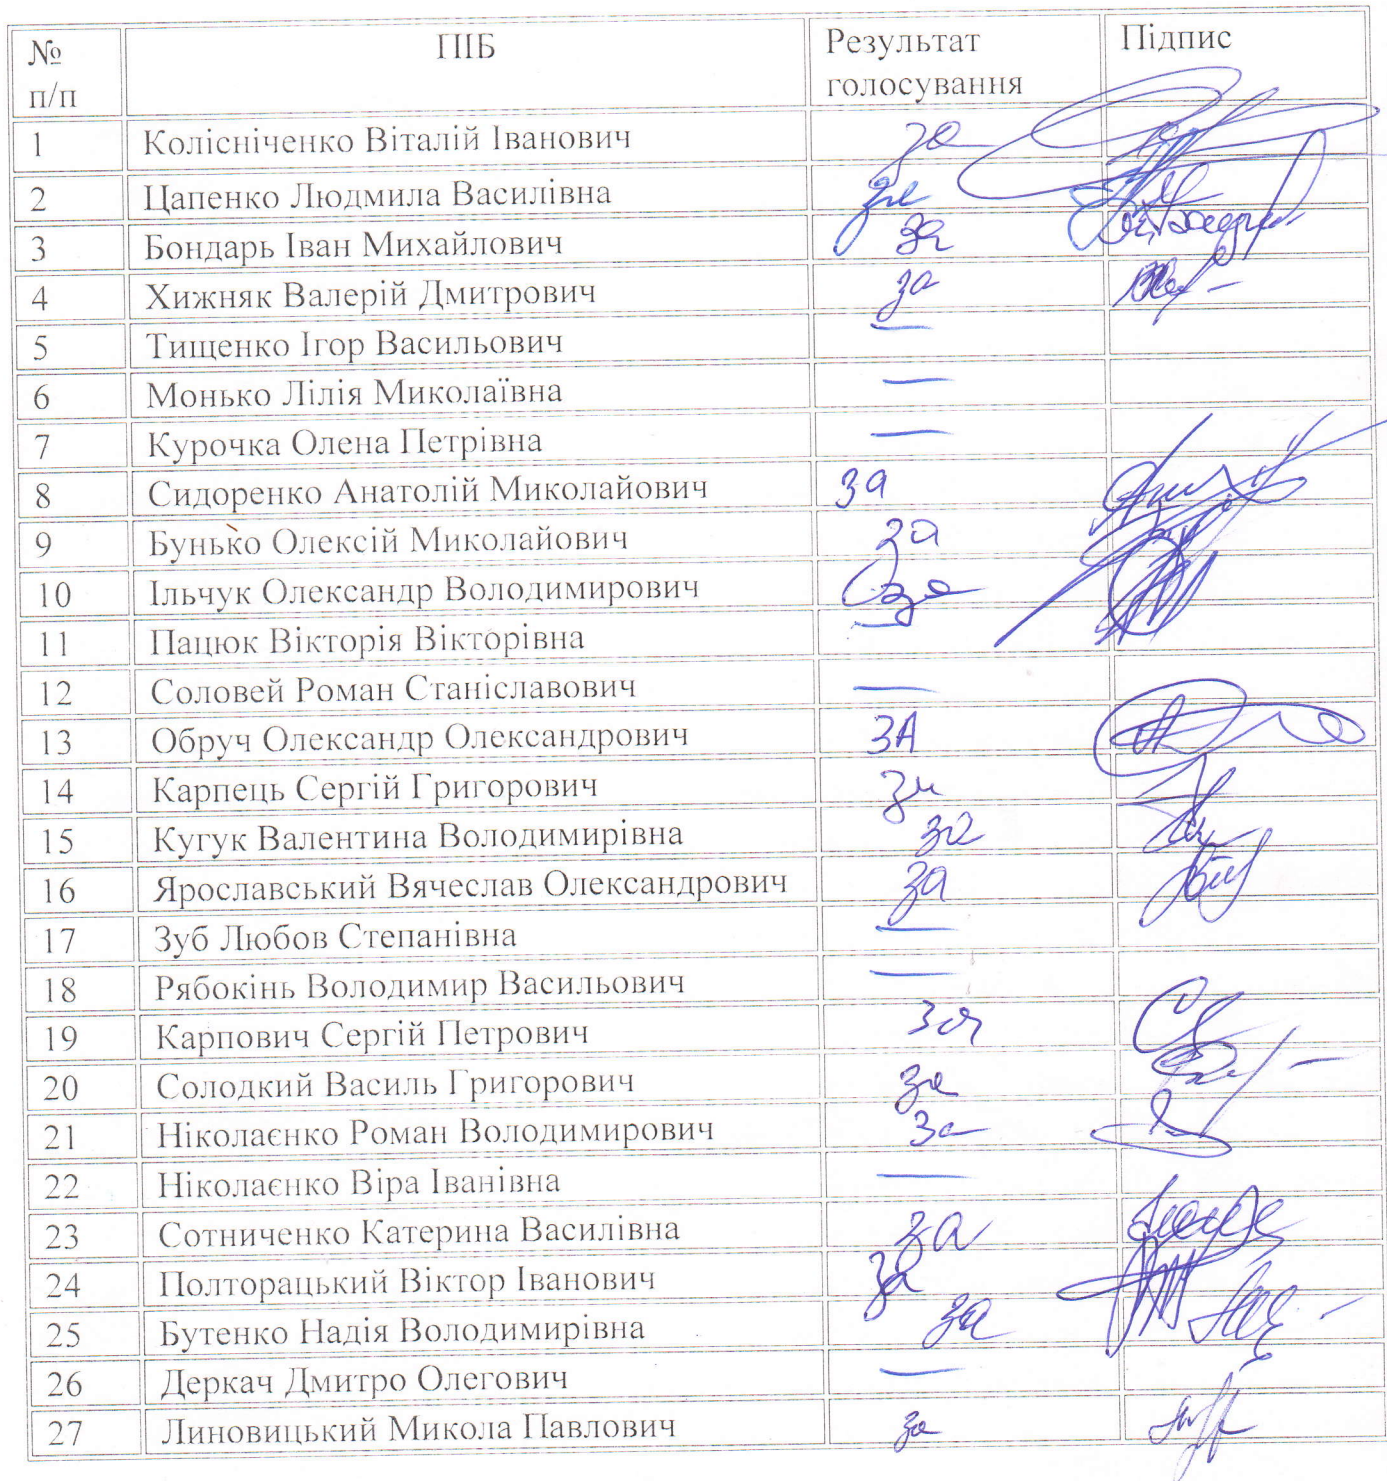 № п/п ПІБ Результат голосування Підпис
1 Колісніченко Віталій Іванович за
2 Цапенко Людмила Василівна за
3 Бондарь Іван Михайлович за
4 Хижняк Валерій Дмитрович за
5 Тищенко Ігор Васильович —
6 Монько Лілія Миколаївна —
7 Курочка Олена Петрівна —
8 Сидоренко Анатолій Миколайович за
9 Бунько Олексій Миколайович за
10 Ільчук Олександр Володимирович за
11 Пацюк Вікторія Вікторівна —
12 Соловей Роман Станіславович —
13 Обруч Олександр Олександрович ЗА
14 Карпець Сергій Григорович за
15 Кугук Валентина Володимирівна за
16 Ярославський Вячеслав Олександрович за
17 Зуб Любов Степанівна —
18 Рябокінь Володимир Васильович —
19 Карпович Сергій Петрович за
20 Солодкий Василь Григорович за
21 Ніколаєнко Роман Володимирович за
22 Ніколаєнко Віра Іванівна —
23 Сотниченко Катерина Василівна за
24 Полторацький Віктор Іванович за
25 Бутенко Надія Володимирівна за
26 Деркач Дмитро Олегович —
27 Линовицький Микола Павлович за